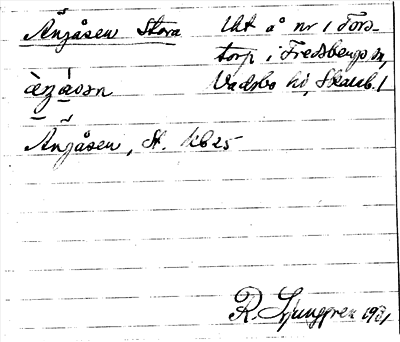 Änjåsen Stora Utt å nr 1 Fors-
torp i Fredsbergs sn,
Vadsbo hd, Skarab. l
Änjåsen, St. Kb 25
R. Ljunggren 1931